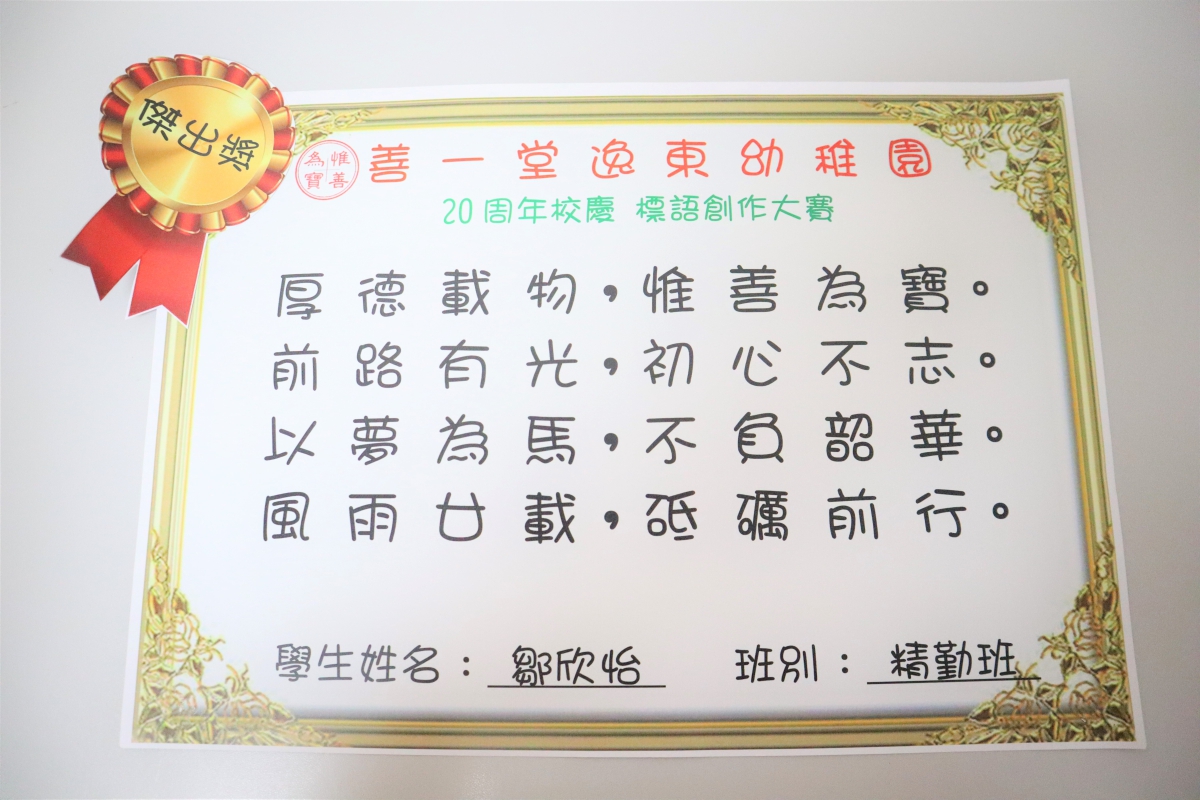 傑出獎
惟善為寶
善一堂逸東幼稚園
20周年校慶 標語創作大賽
厚德載物，惟善為寶。
前路有光，初心不志。
以夢為馬，不負韶華。
風雨廿載，砥礪前行。
學生姓名：鄒欣怡 班別：精勤班